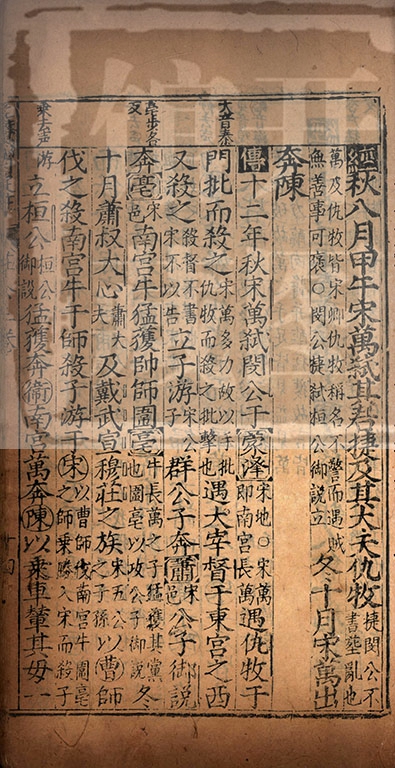 經秋八月甲午宋萬弒其君捷及其大夫仇牧捷閔公不書葬亂也
萬及仇牧皆宋卿仇牧稱名不警而遇賊無善事可襃○閔公捷弒桓公御說立冬十月宋萬出
奔陳
傳十二年秋宋萬弒閔公于蒙澤宋地○宋萬即南宮長萬遇仇牧于
大音泰
門批而殺之宋萬多力故以手批仇牧而殺之批擊也遇大宰督于東宮之西
又殺之殺督不書宋不以告立子游子宋公群公子奔蕭宋邑公子御說
亳步各反
奔亳宋邑南宮牛猛獲帥師圍亳牛長萬之子猛獲其黨也圍亳以攻公子御說冬
十月蕭叔大心蕭大夫及戴武宣穆莊之族宋五公之子孫以曹師
伐之殺南宮牛于師殺子游于宋以曹師伐南宮牛圍亳之師乘勝入宋而殺子
乘去聲
游立桓公桓公御說猛獲奔衛南宮萬奔陳以乘車輦其母一